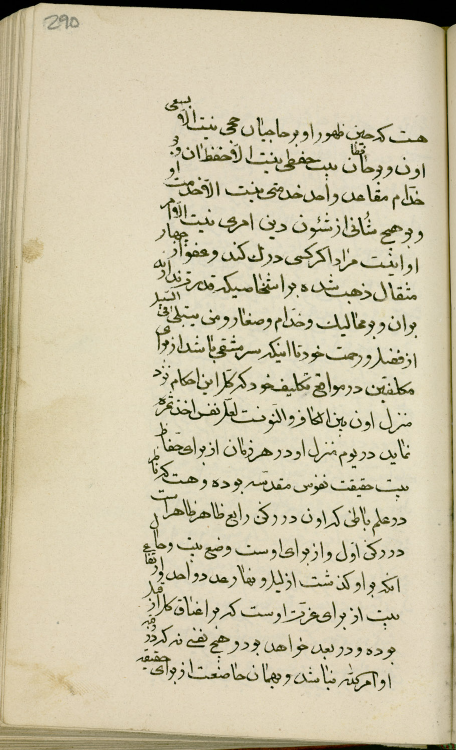 290
هست که حین ظهور او بر حاجیان حجی نیست الا سعی
او و بر حفاظ بیت حفظی نیست الا حفظ ان و بر
خدام مقاعد واحد خدمتی نیست الا خدمت او
و بر هیچ شأنی از شئون دینی امری نیست الا امر
او اینست مراد اگر کسی درک کند و عفو از چهار
مثقال ذهب شده بر اشخاصیکه قدرت ندارند
بران و بر ممالیک و خدام و صغار و من یبتلی فی السبیل
از فضل و رحمت خود تا اینکه سر مشقی باشد از برای
مکلفین در مواقع تکلیف خود که کل این احکام نزد
منزل اون بین الکاف و النونست لعل نفسی اخذ ثمره
نماید در یوم منزل او در هر زمان از برای حفاظ
بیت حقیقت نفوس مقدسه بوده و هست که ناظر
در علم باطن که اون در رکن رابع ظاهر ظاهر است
در رکن اول و از برای اوست وضع بیت و حال
انکه بر او گذشت از لیل و نهار عدد واحد و ارتفاع
بیت از برای عزت اوست که بر اعناق کل از قبل
بوده و در بعد خواهد بود و هیچ نفسی نه که در
او امر کننده نباشد و همان حاضعت از برای حقیقة